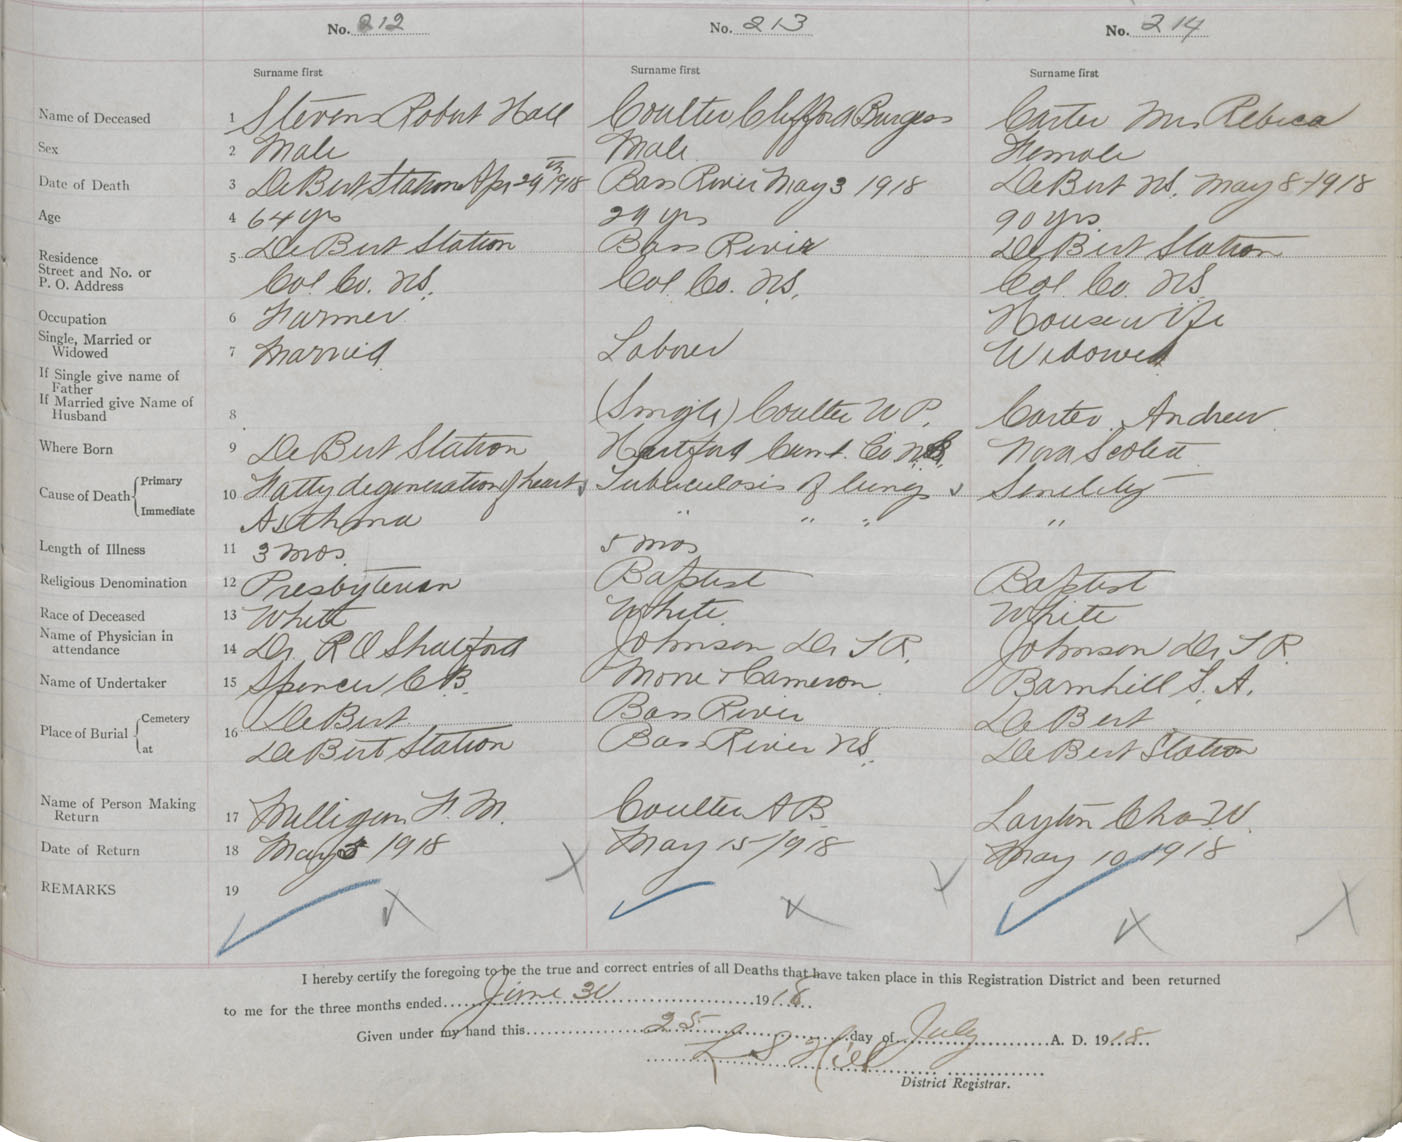 No. 212 No. 213 No. 214
Surname first Surname first Surname first
Name of Deceased 1 Stevens Robert Hall Coulter Clifford Burgess Carter Mrs Rebeca
Sex 2 Male Male Female
Date of Death 3 DeBert Station Apr 29th 1918 Bass River May 3 1918 DeBert NS. May 8-1918
Age 4 64 yrs 29 yrs 90 yrs
Residence 5 DeBert Station Bass River DeBert Station
Street and No. or
P. O. Address Col. Co. NS. Col. Co. NS. Col. Co. NS
Occupation 6 Farmer Housewife
Single, Married or
Widowed 7 Married Laborer Widowed
If Single give name of
Father
If Married give Name of
Husband 8 (Single) Coulter W P. Carter. Andrew
Where Born 9 DeBert Station Hartford Cum. Co. NS. Nova Scotia
Cause of Death Primary 10 Fatty degeneration of heart Tuberculosis of lungs Senility
Immediate Asthma " " " "
Length of Illness 11 3 mos. 5 mos
Religious Denomination 12 Presbyterian Baptist Baptist
Race of Deceased 13 White White White
Name of Physician in
attendance 14 Dr. R O Shatford Johnson Dr T R. Johnson Dr T R.
Name of Undertaker 15 Spencer C B. More & Cameron Barnhill S. A.
Place of Burial Cemetery 16 DeBert Bass River DeBert
at DeBert Station Bass River NS. DeBert Station
Name of Person Making
Return 17 Milligan F. M. Coulter A B Layton Chas W.
Date of Return 18 May 5 1918 May 15/1918 May 10 1918
REMARKS 19
I hereby certify the foregoing to be the true and correct entries of all Deaths that have taken place in this Registration District and been returned
to me for the three months ended June 30 1918
Given under my hand this 25 day of July A. D. 1918
L S Hill
District Registrar.